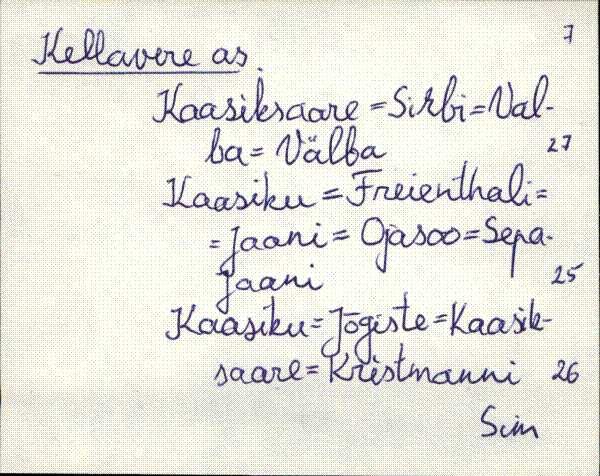 7
Kellavere as.
Kaasiksaare = Sirbi = Val-
ba = Välba
27
Kaasiku = Freienthali =
= Jaani = Ojasoo = Sepa-
Jaani
25
Kaasiku = Jõgiste = Kaasik-
saare = Kristmanni 26
Sim